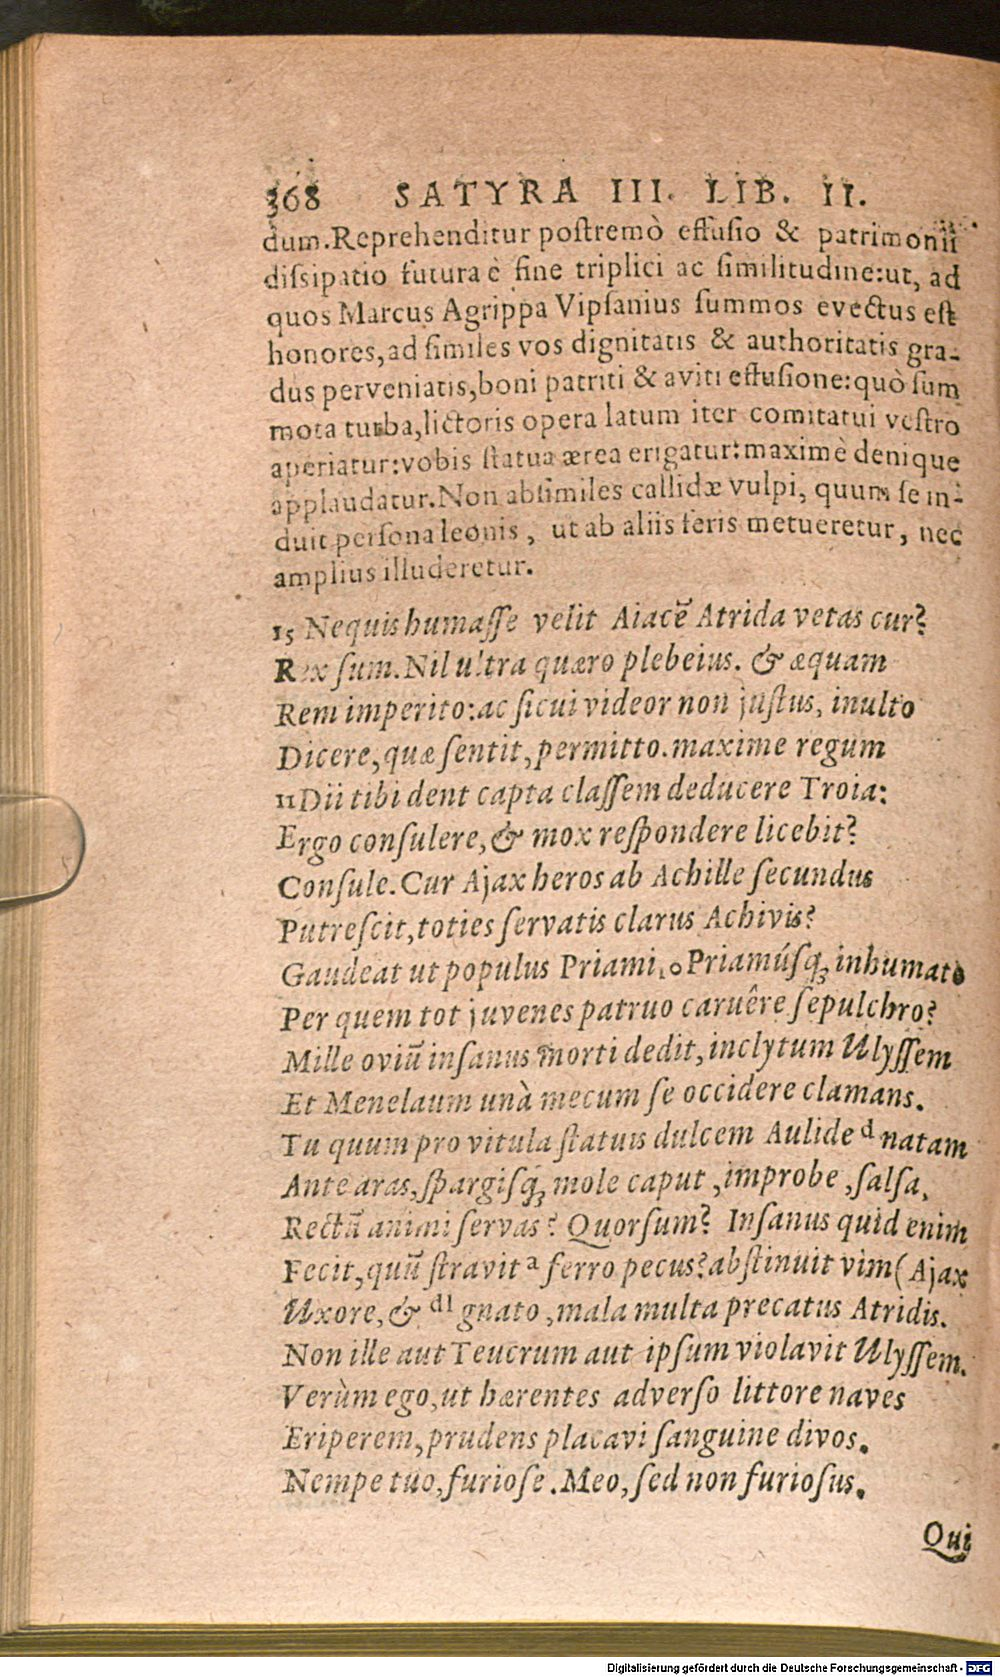 368 SATYRA III. LIB. II.
dum. Reprehenditur postremò effusio & patrimonii
dissipatio futura è fine triplici ac similitudine: ut, ad
quos Marcus Agrippa Vipsanius summos evectus est
honores, ad similes vos dignitatis & authoritatis gra-
dus perveniatis, boni patriti & aviti effusione: quò sum
mota turba, lictoris opera latum iter comitatui vestro
aperiatur: vobis statua ærea erigatur: maximè denique
applaudatur. Non absimiles callidæ vulpi, quum se in-
duit persona leonis, ut ab aliis feris metueretur, nec
amplius illuderetur.
15 Nequis humasse velit Aiacē Atrida vetas cur?
Rex sum. Nil ultra quæro plebeius. & æquam
Rem imperito: ac sicui videor non justus, inulto
Dicere, quæ sentit, permitto. maxime regum
11 Dii tibi dent capta classem deducere Troia:
Ergo consulere, & mox respondere licebit?
Consule. Cur Ajax heros ab Achille secundus
Putrescit, toties servatis clarus Achivis?
Gaudeat ut populus Priami 10 Priamúsq; inhumato
Per quem tot juvenes patruo caruêre sepulchro?
Mille oviū insanus morti dedit, inclytum Ulyssem
Et Menelaum unà mecum se occidere clamans.
Tu quum pro vitula statuis dulcem Aulide d natam
Ante aras, spargisq; mole caput, improbe, salsa,
Rectū animi servas? Quorsum? Insanus quid enim
Fecit, quū stravit a ferro pecus? abstinuit vim (Ajax
Uxore, & dl gnato, mala multa precatus Atridis.
Non ille aut Teucrum aut ipsum violavit Ulyssem.
Verùm ego, ut hærentes adverso littore naves
Eriperem, prudens placavi sanguine divos.
Nempe tuo, furiose. Meo, sed non furiosus.
Qui
Digitalisierung gefördert durch die Deutsche Forschungsgemeinschaft - DFG